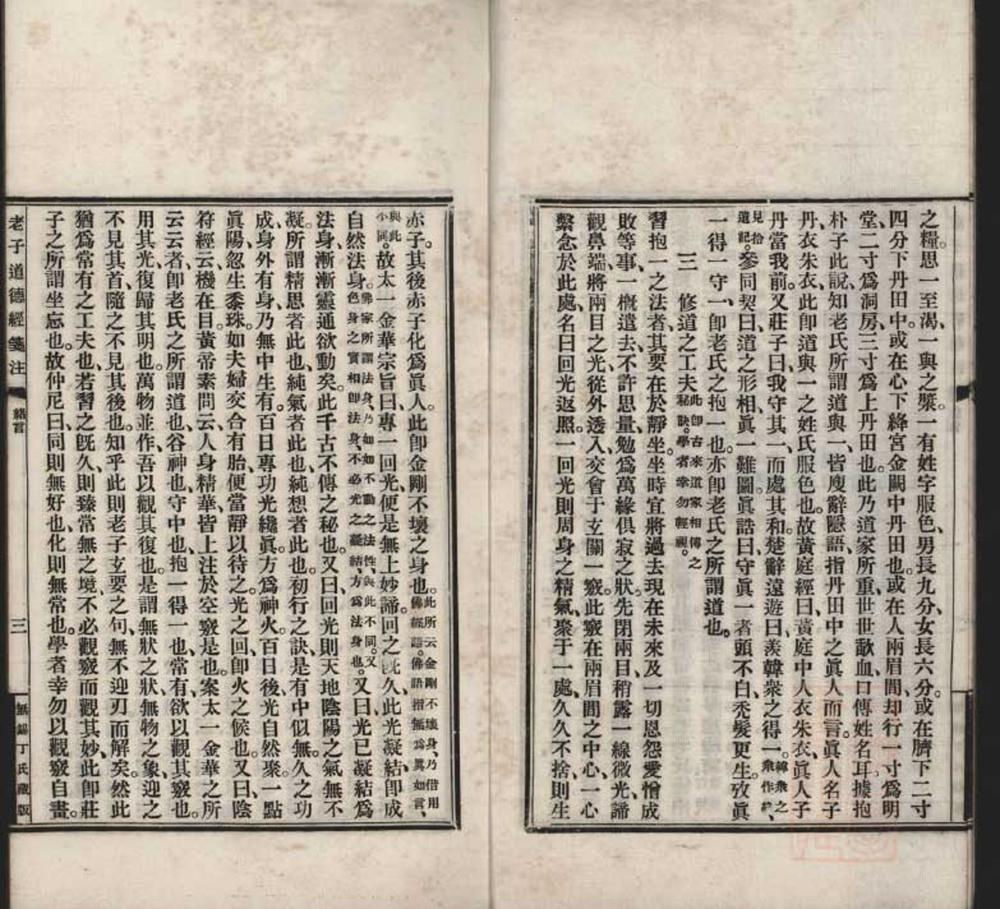 之糧、思一至渴、一與之漿、一有姓字服色、男長九分、女長六分。或在臍下二寸
四分下丹田中。或在心下絳宮金闕中丹田也。或在人兩眉間、却行一寸爲明
堂、二寸爲洞房、三寸爲上丹田也。此乃道家所重、世世歃血口傳姓名耳、據抱
朴子此說、知老氏所謂道與一、皆廋辭隱語、指丹田中之眞人而言。眞人名子
丹、衣朱衣、此卽道與一之姓氏服色也。故黃庭經曰、黃庭中人衣朱衣、眞人子
丹當我前。又莊子曰、我守其一而處其和。楚辭遠遊曰、羨韓衆之得一。韓衆之衆作終、
見拾遺記。參同契曰、道之形相、眞一難圖。眞誥曰、守眞一者、頭不白、禿髮更生。攷眞
一得一守一、卽老氏之抱一也。亦卽老氏之所謂道也。
三　修道之工夫 此卽古來道家相傳之祕訣、學者幸勿輕視。
習抱一之法者、其要在於靜坐、坐時宜將過去現在未來及一切恩怨愛憎成
敗等事、一槪遣去、不許思量、勉爲萬緣俱寂之狀。先閉兩目、稍露一線微光、諦
觀鼻端、將兩目之光、從外透入、交會于玄關一竅。此竅在兩眉間之中心、一心
繫念於此處、名曰回光返照。一回光則周身之精氣、聚于一處、久久不捨、則生
赤子。其後赤子化爲眞人。此卽金剛不壞之身也。此所云金剛不壞身、乃借用佛經語。佛語指無爲眞如言、
與此小同。故太一金華宗旨曰、專一回光、便是無上妙諦。回之旣久、此光凝結、卽成
自然法身。佛家所謂法身、乃如如不動之法性、與此不同。又色身之實相卽法身、不必光之凝結、方爲法身也。又曰、光已凝結爲
法身、漸漸靈通欲動矣。此千古不傳之祕也。又曰、回光則天地陰陽之氣無不
凝、所謂精思者此也、純氣者此也、純想者此也。初行之訣、是有中似無、久之功
成、身外有身、乃無中生有。百日專功光纔眞、方爲神火、百日後、光自然聚、一點
眞陽、忽生黍珠、如夫婦交合有胎、便當靜以待之。光之回、卽火之候也。又曰、陰
符經云、機在目。黃帝素問云、人身精華、皆上注於空竅是也。案太一金華之所
云云者、卽老氏之所謂道也、谷神也、守中也、抱一得一也、常有、欲以觀其竅也。
用其光、復歸其明也。萬物並作、吾以觀其復也。是謂無狀之狀、無物之象、迎之
不見其首、隨之不見其後也。知乎此、則老子玄要之句、無不迎刃而解矣。然此
猶爲常有之工夫也、若習之旣久、則臻常無之境、不必觀竅而觀其妙、此卽莊
子之所謂坐忘也。故仲尼曰、同則無好也、化則無常也。學者幸勿以觀竅自畫。
老子道德經箋注
緒言
三
無錫丁氏藏版